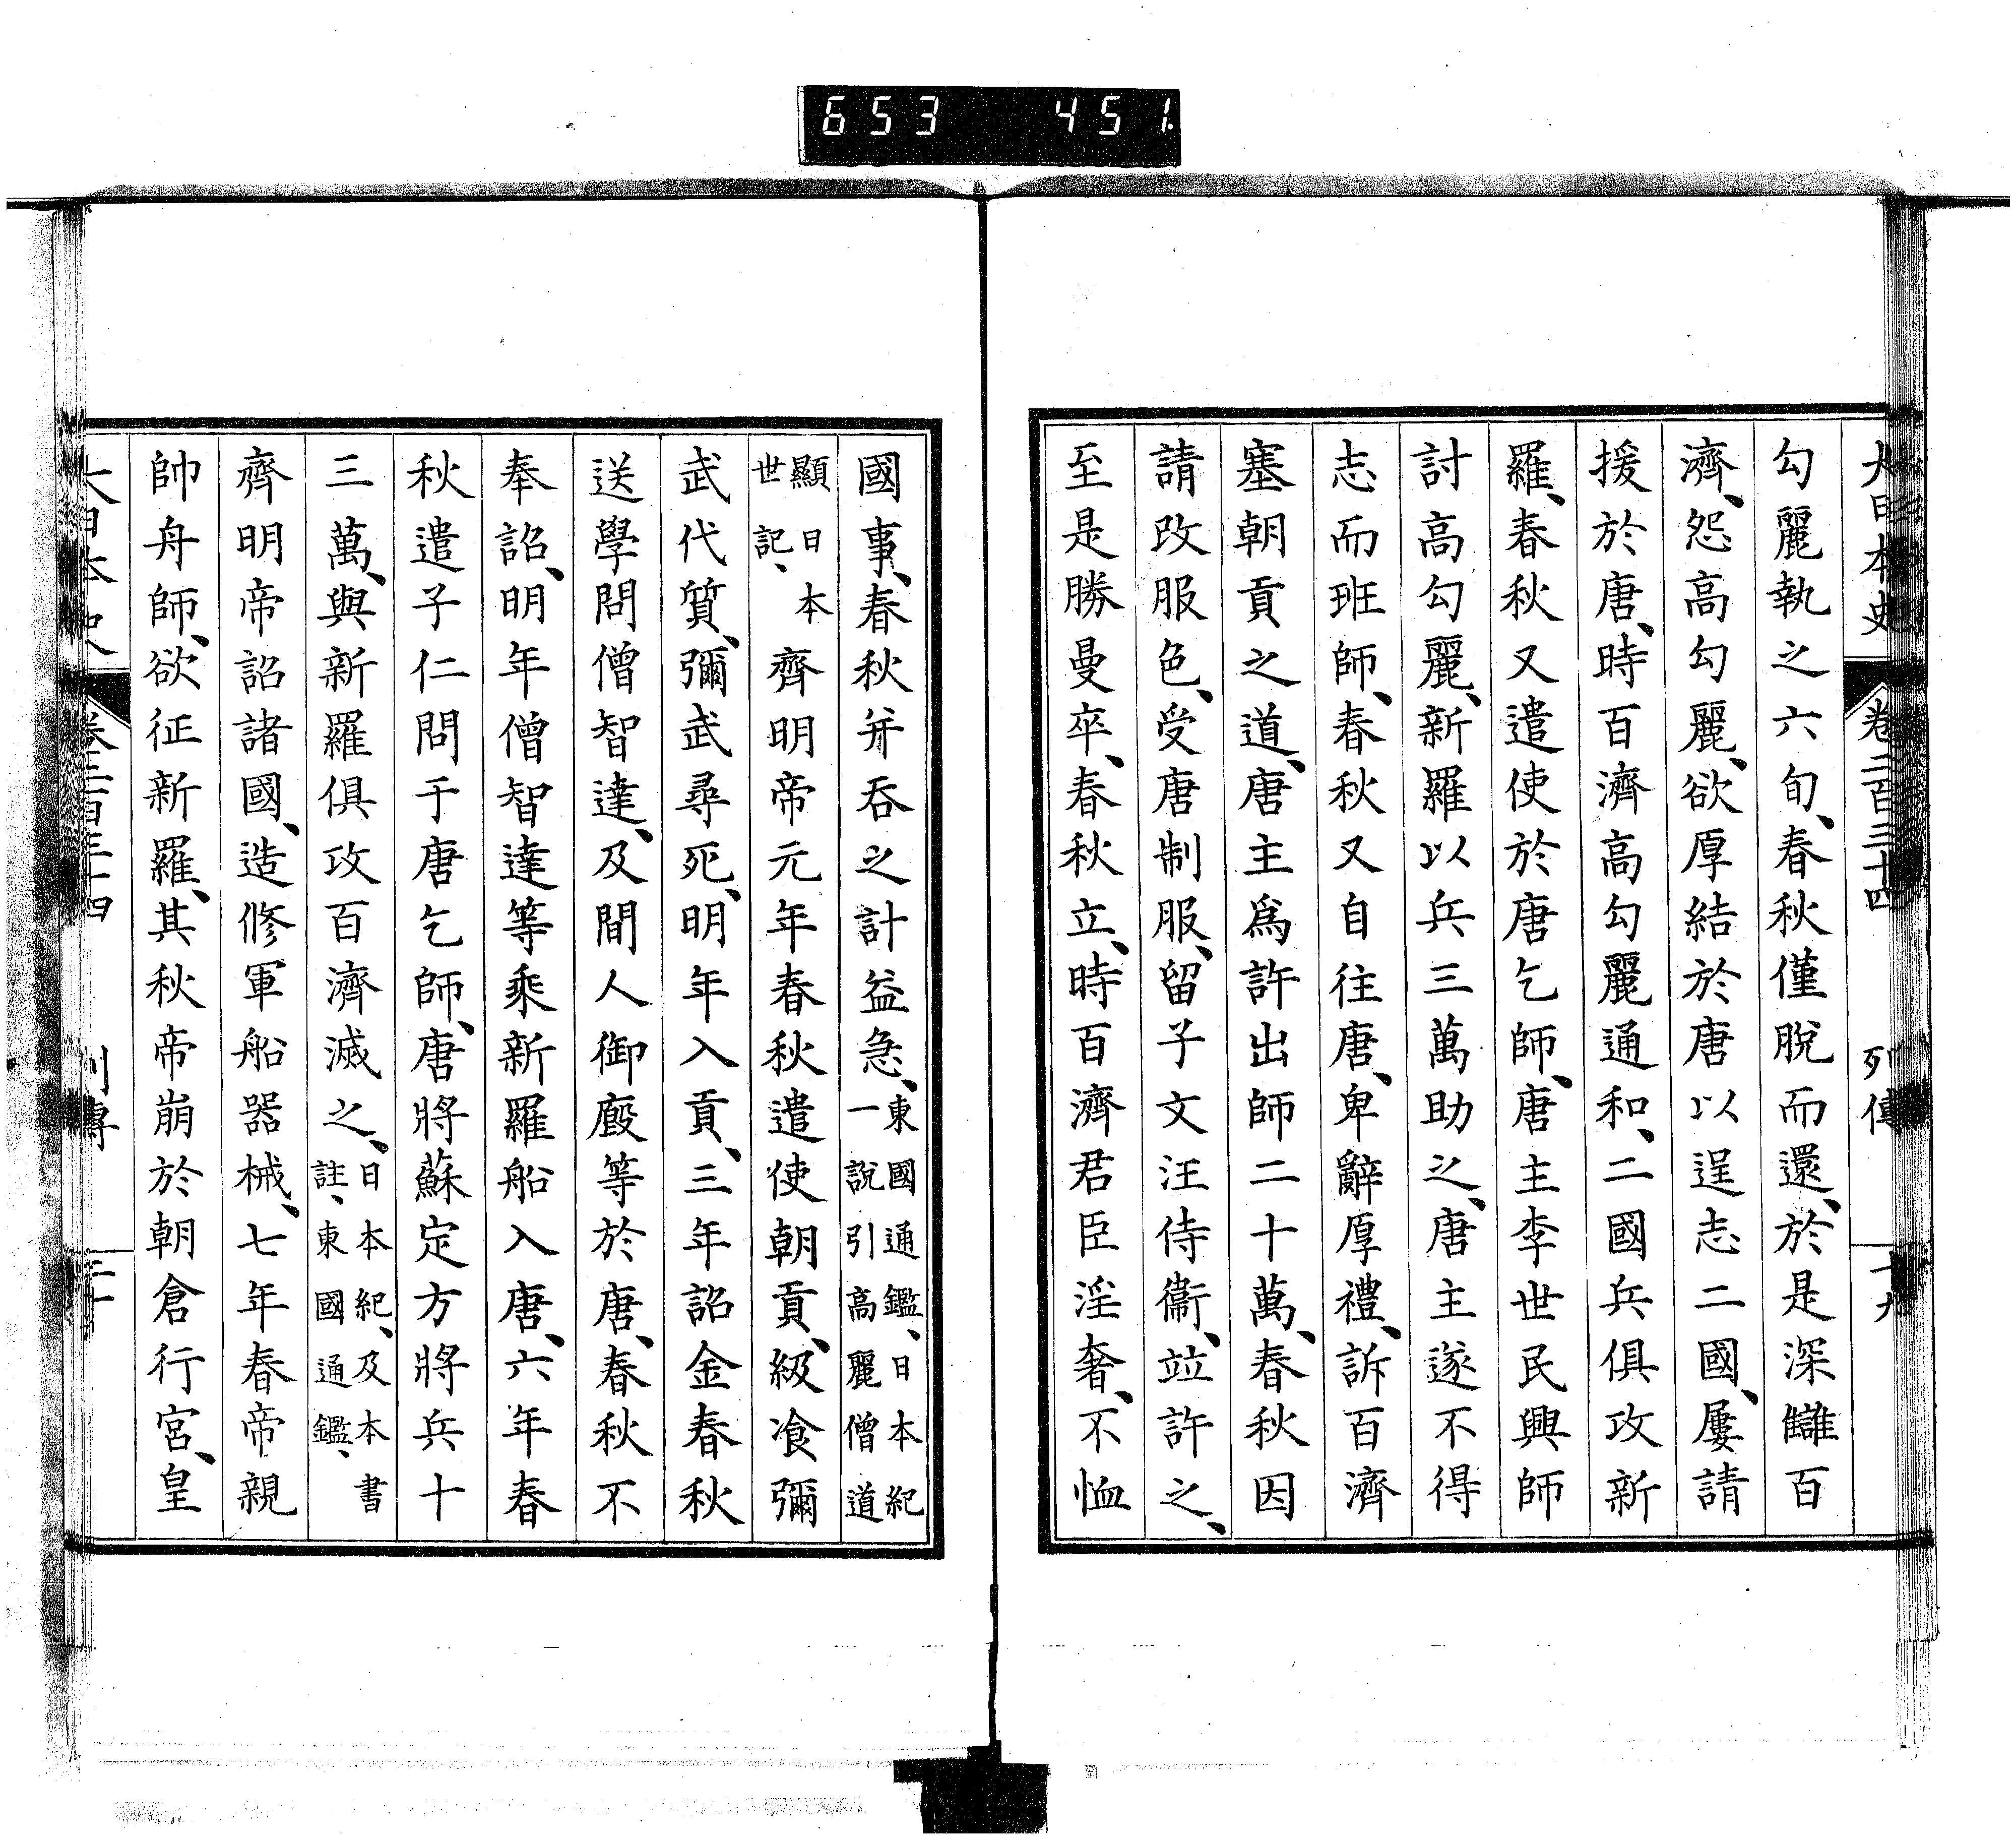 653 451.
大日本史 卷二百三十四 列傳 十九
勾麗執之六旬、春秋僅脫而還、於是深讎百
濟、怨高勾麗、欲厚結於唐以逞志二國、屢請
援於唐、時百濟高勾麗通和、二國兵俱攻新
羅、春秋又遣使於唐乞師、唐主李世民興師
討高勾麗、新羅以兵三萬助之、唐主遂不得
志而班師、春秋又自往唐、卑辭厚禮、訴百濟
塞朝貢之道、唐主爲許出師二十萬、春秋因
請改服色、受唐制服、留子文汪侍衞、竝許之、
至是勝曼卒、春秋立、時百濟君臣淫奢、不恤
國事、春秋幷吞之計益急、東國通鑑、日本紀
一說引高麗僧道
顯日本
世記、
齊明帝元年春秋遣使朝貢、級飡彌
武代質、彌武尋死、明年入貢、三年詔金春秋
送學問僧智達、及間人御廐等於唐、春秋不
奉詔、明年僧智達等乘新羅船入唐、六年春
秋遣子仁問于唐乞師、唐將蘇定方將兵十
三萬、與新羅俱攻百濟滅之、日本紀、及本書
註、東國通鑑、
齊明帝詔諸國、造修軍船器械、七年春帝親
帥舟師、欲征新羅、其秋帝崩於朝倉行宮、皇
大日本史 卷二百三十四 列傳 二十